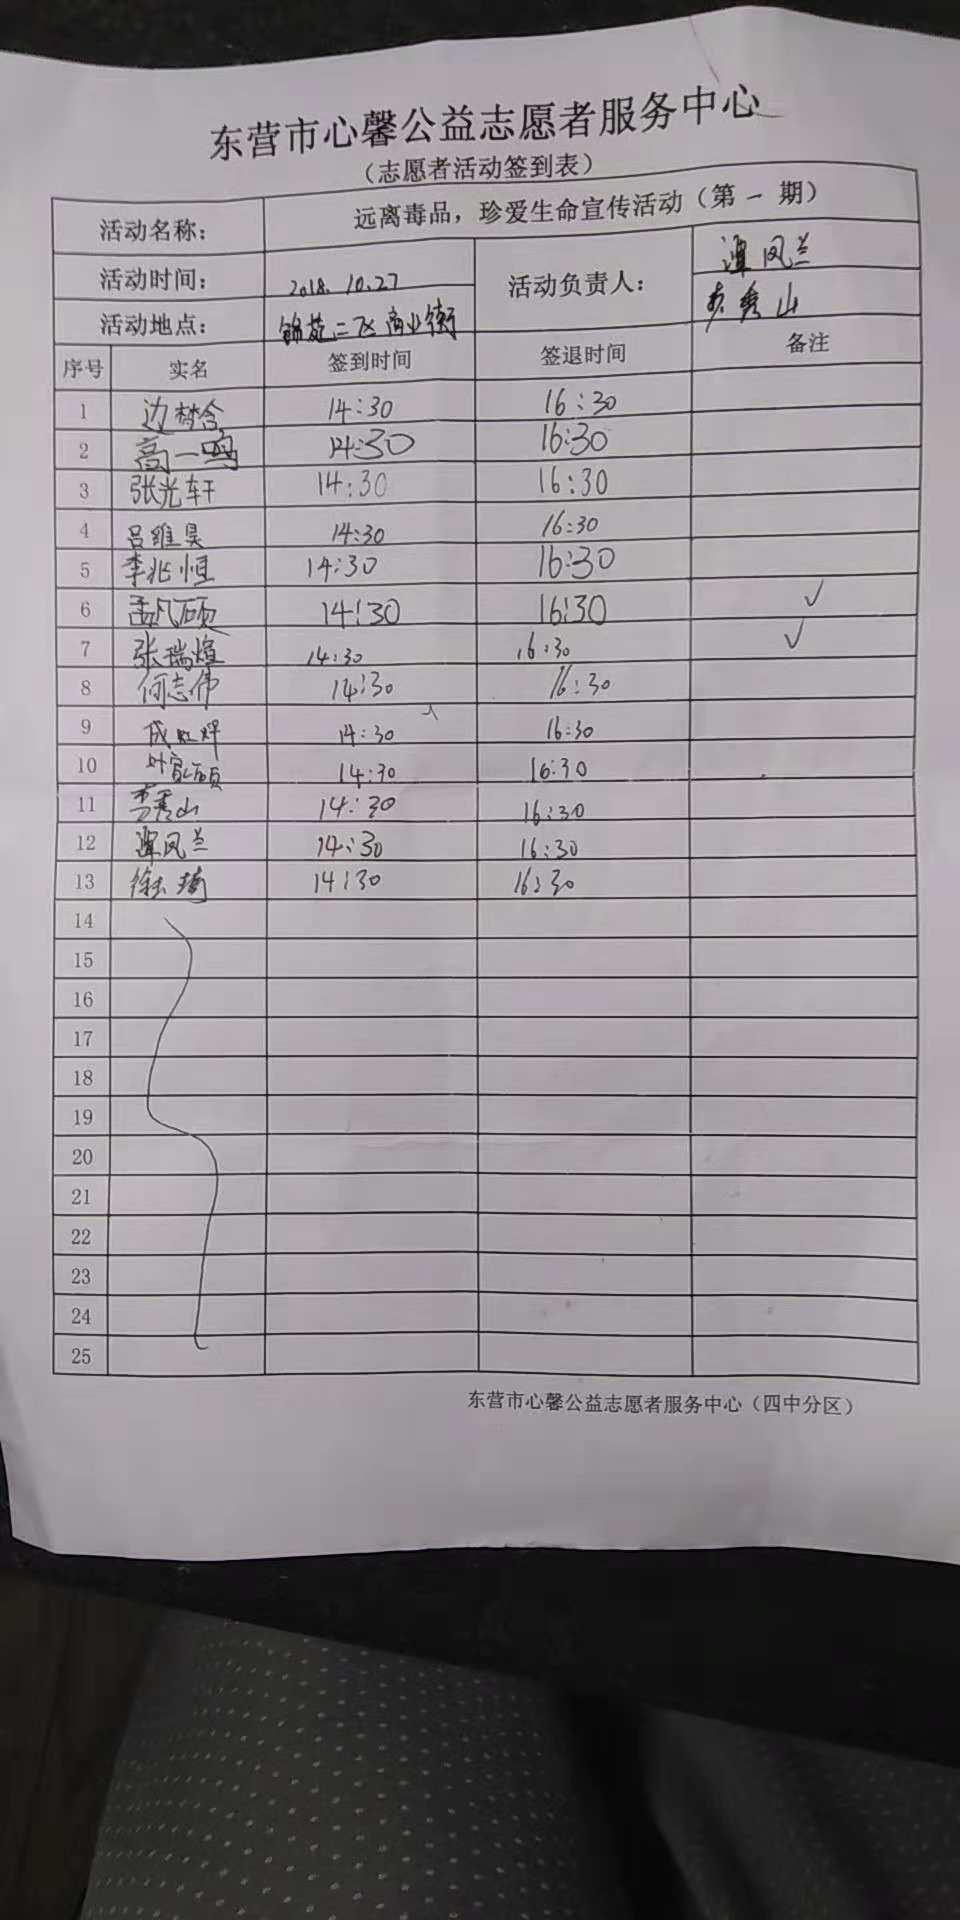 东营市心馨公益志愿者服务中心
（志愿者活动签到表）
活动名称： 远离毒品，珍爱生命宣传活动（第一期）
活动时间： 2018.10.27 活动负责人： 谭凤兰
活动地点： 锦苑二区商业街 李秀山
序号 实名 签到时间 签退时间 备注
1 边梦含 14:30 16:30
2 高一鸣 14:30 16:30
3 张光轩 14:30 16:30
4 吕维昊 14:30 16:30
5 李兆恒 14:30 16:30
6 孟凡硕 14:30 16:30 ✓
7 张瑞煊 14:30 16:30 ✓
8 何志伟 14:30 16:30
9 14:30 16:30
10 14:30 16:30
11 李秀山 14:30 16:30
12 谭凤兰 14:30 16:30
13 14:30 16:30
14
15
16
17
18
19
20
21
22
23
24
25
东营市心馨公益志愿者服务中心（四中分区）